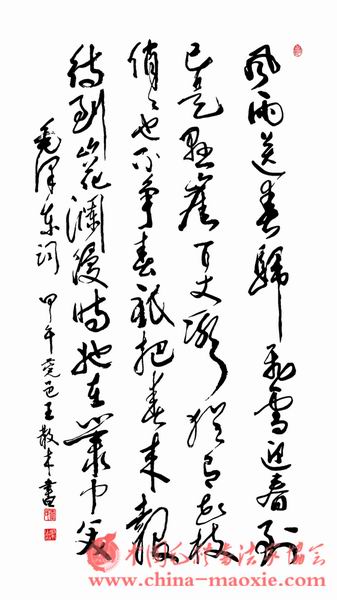 風雨送春歸 飛雪迎春到
已是懸崖百丈冰 猶有花枝
俏〻也不爭春 祇把春來報
待到山花爛漫時 她在叢中笑
毛澤東詞 甲午莞邑王散木書
中国毛体书法家协会
www.china-maoxie.com